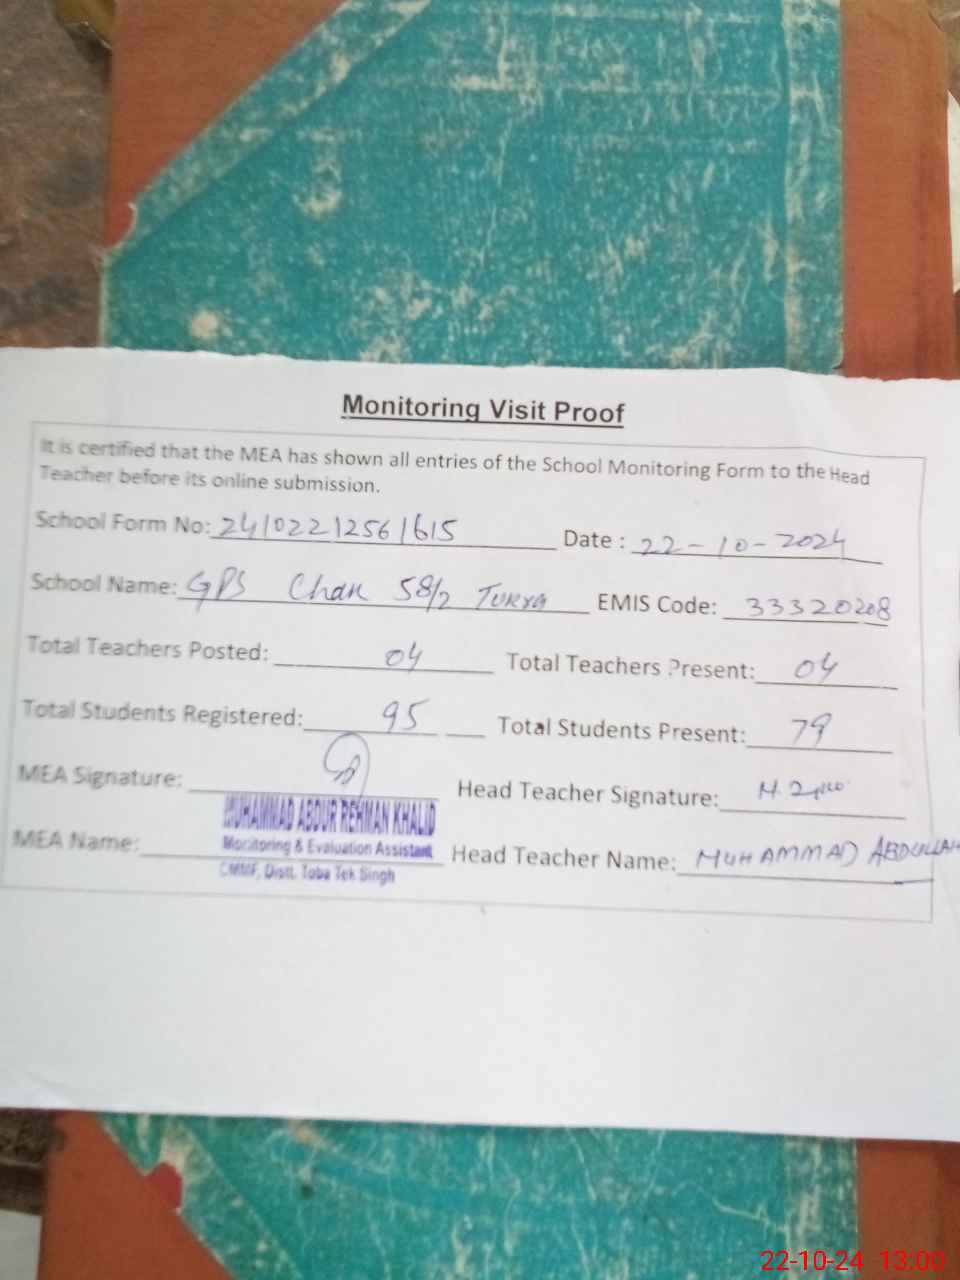 Monitoring Visit Proof
It is certified that the MEA has shown all entries of the School Monitoring Form to the Head
Teacher before its online submission.
School Form No: 24102212561615 Date : 22-10-2024
School Name: GPS Chak 58/2 Turya EMIS Code: 33320208
Total Teachers Posted: 04 Total Teachers Present: 04
Total Students Registered: 95 Total Students Present: 79
MEA Signature: Head Teacher Signature:
MUHAMMAD ABDUR REHMAN KHALID
MEA Name: Monitoring & Evaluation Assistant Head Teacher Name: MUHAMMAD ABDULLAH
CMMF, Distt. Toba Tek Singh
22-10-24 13:00